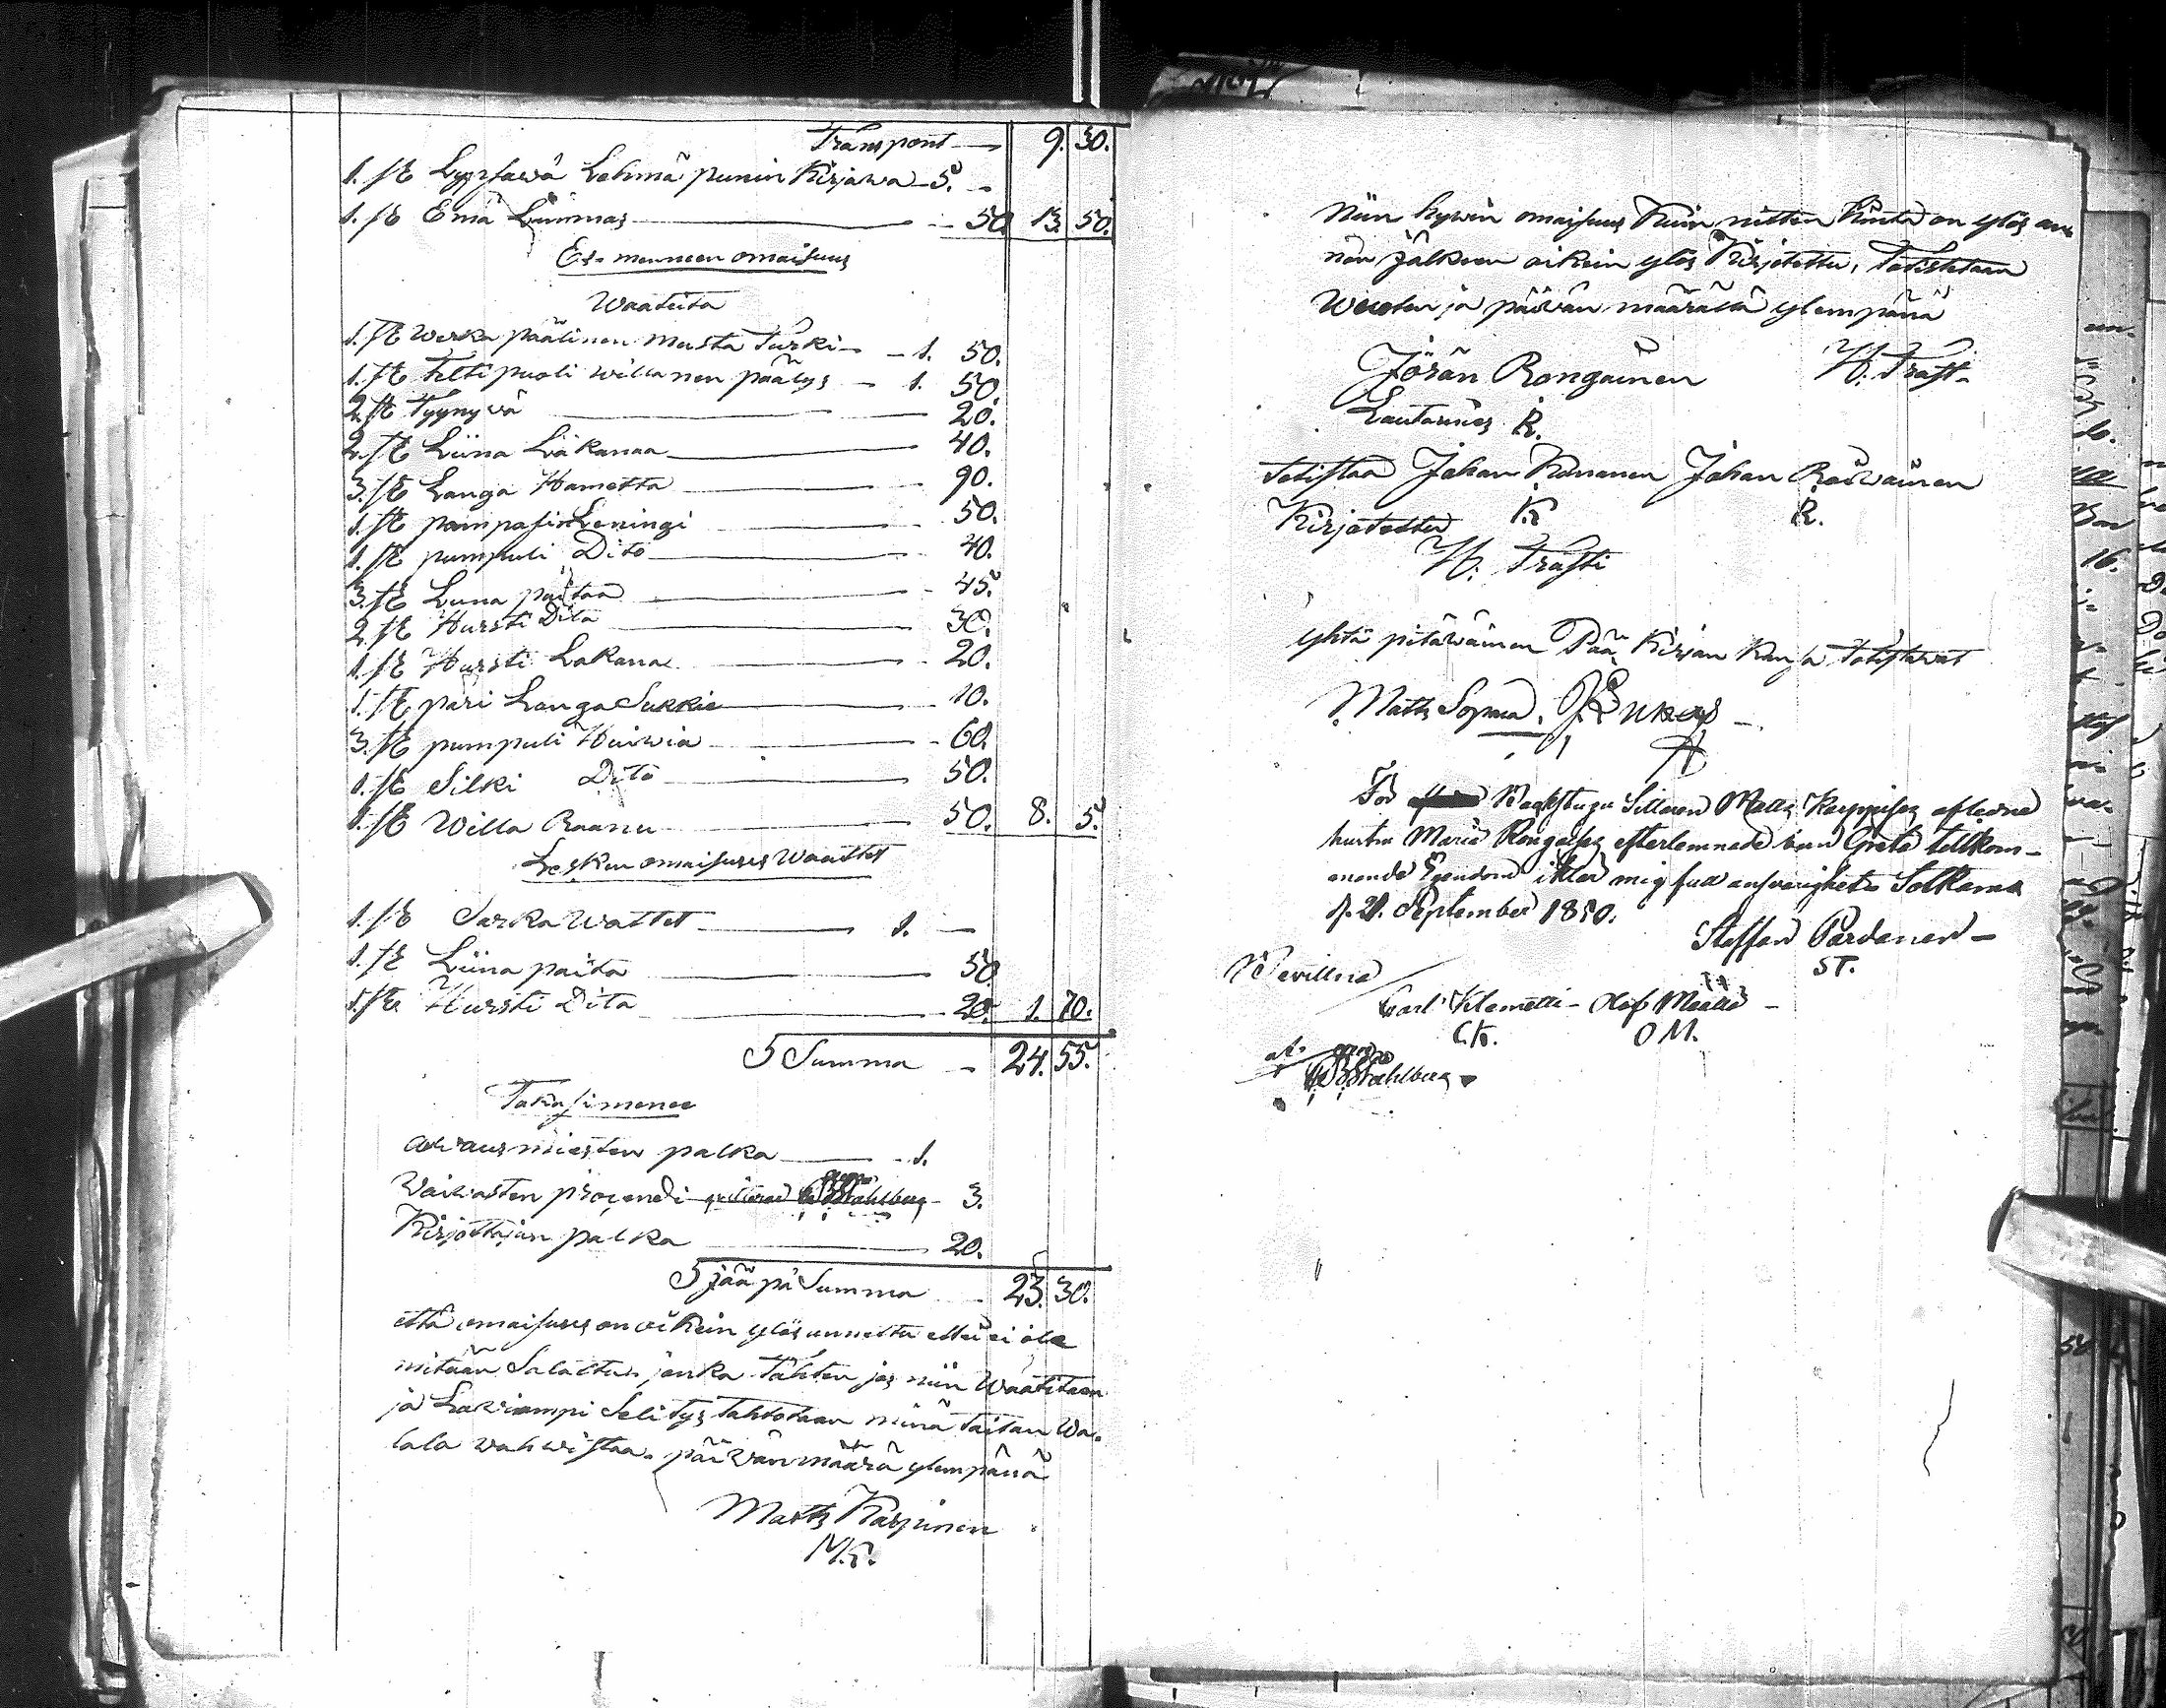 Transport — 9. 30.
1. st Lypsawä Lehmä punin Kirjawa — 5. –
1. st Emä Lammas — 50. 13. 50.
Es. menneen omaisuus
Waateita
1. st Werka päälinen musta Turki — 1. 50.
1. st Felti puoli willanen päälys — 1. 50.
2. st Tyynywä — 20.
2. st Liina Läkanaa — 40.
3. st Langa Hametta — 90.
1. st Leningi — 50.
1. st pumpuli Dito — 40.
3. st Liina paitaa — 45.
2. st Hursti Dito — 30.
1. st Hursti Lakana — 20.
1. st pari Langa Sukkia — 10.
3. st pumpuli Huiwia — 60.
1. st Silki Dito — 50.
1. st Willa Raanu — 50. 8. 5.
Lesken omaisuus Waattet
1. st Sarka Wattet — 1. —
1. st Liina paita — 50
1. st Hursti Dito — 20. 1. 70.
S Summa — 24. 55.
Takasimenee
arwausmiesten palka — 1.
Waiwasten procendi Wståhlberg — 3.
Kirjottajan palka — 20.
S jää pä Summa — 23. 30.
että omaisuus on oikein ylösannettu ettei ei ole
mitään Salattu, jonka tähten jos niin Waatitaan
ja Lawiampi Selitys tahtotaan minä taitan Wa-
lala wahwistaa. päiwän määrä ylempänä
Matts Karpinen
M.K.
Niin hywin omaisuus Kuin nitten hinta on ylös an-
non jälkeen oikein ylös Kirjotettu, Totistetaan
Wuoten ja päiwän määrällä ylempänä
Jöran Rongainen H. Trast
Lautamies R.
Totistaa Johan Kananen Johan Räiwäinen
K R.
Kirjotettu
H. Trasti
yhtä pitäwäinen Pää Kirjan Kansa Totistawat
Matts
För Backstugu Sittaren Matts Karppises aflidna
hustru Maria Rongases efterlemnade barn Greta tillkom-
mande Egendom iklär mig full answarighet. Sotkamo
d. 21. September 1850.
Staffan Pardanen —
ST.
Bevittna
Carl Klemetti — Olof Määttä —
C.K. OM.
Wståhlberg